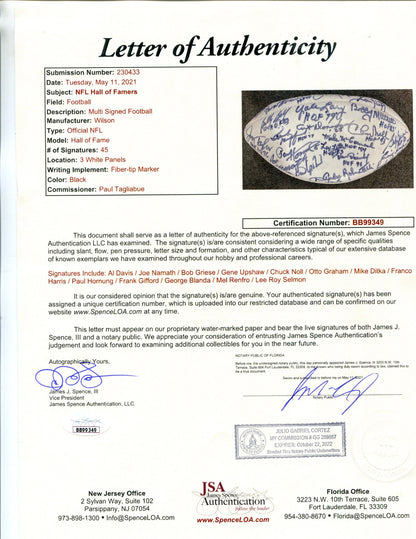 Letter of Authenticity
Submission Number: 230433
Date: Tuesday, May 11, 2021
Subject: NFL Hall of Famers
Field: Football
Description: Multi Signed Football
Manufacturer: Wilson
Type: Official NFL
Model: Hall of Fame
# of Signatures: 45
Location: 3 White Panels
Writing Implement: Fiber-tip Marker
Color: Black
Commissioner: Paul Tagliabue
Certification Number: BB99349
This document shall serve as a letter of authenticity for the above-referenced signature(s), which James Spence
Authentication LLC has examined. The signature(s) is/are consistent considering a wide range of specific qualities
including slant, flow, pen pressure, letter size and formation, and other characteristics typical of our extensive database
of known exemplars we have examined throughout our hobby and professional careers.
Signatures Include: Al Davis / Joe Namath / Bob Griese / Gene Upshaw / Chuck Noll / Otto Graham / Mike Ditka / Franco
Harris / Paul Hornung / Frank Gifford / George Blanda / Mel Renfro / Lee Roy Selmon
It is our considered opinion that the signature(s) is/are genuine. Your authenticated signature(s) has been
assigned a unique certification number, which is uploaded into our restricted database and can be confirmed on our
website www.SpenceLOA.com at any time.
This letter must appear on our proprietary water-marked paper and bear the live signatures of both James J.
Spence, III and a notary public. We appreciate your consideration of entrusting James Spence Authentication's
judgement and look forward to examining additional collectibles for you in the near future.
Autographically Yours,
James J. Spence, III
Vice President
James Spence Authentication, LLC.
BB99349
NOTARY PUBLIC OF FLORIDA
Notary Public
JULIO GABRIEL CORTEZ
MY COMMISSION # GG
EXPIRES: October 22, 2022
Bonded Thru Notary Public Underwriters
New Jersey Office
2 Sylvan Way, Suite 102
Parsippany, NJ 07054
973-898-1300 • Info@SpenceLOA.com
JSA
James Spence
Authentication
follow the leader
www.SpenceLOA.com
Florida Office
3223 N.W. 10th Terrace, Suite 605
Fort Lauderdale, FL 33309
954-380-8670 • Florida@SpenceLOA.com